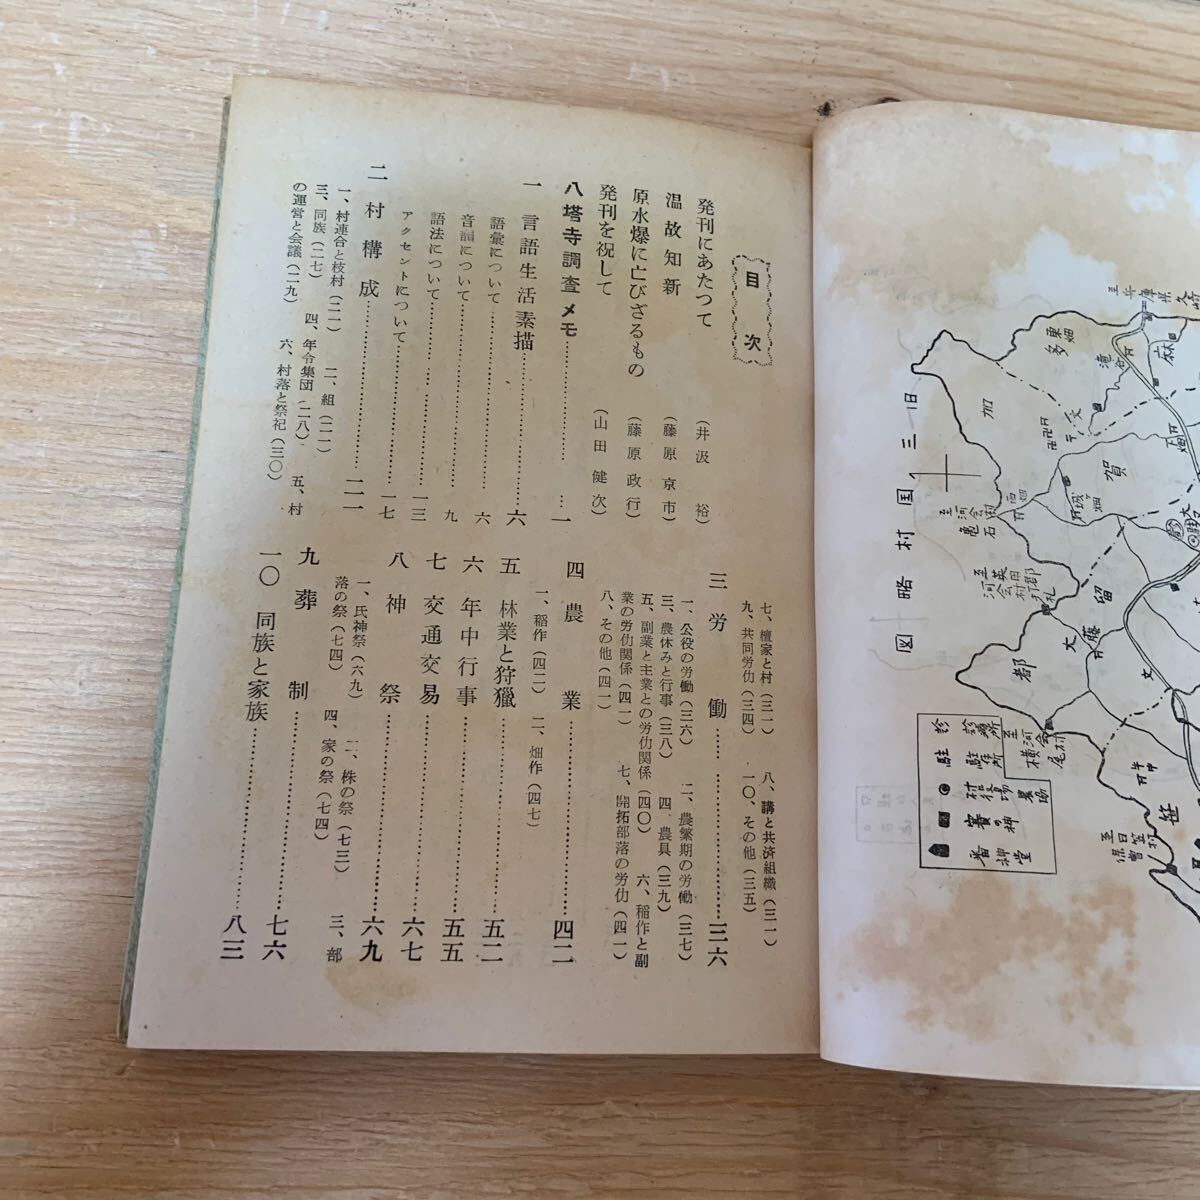 目次
発刊にあたつて (井汲 裕)
温故知新 (藤原京市)
原水爆に亡びざるもの (藤原政行)
発刊を祝して (山田健次)
八塔寺調査メモ…………… 一
一 言語生活素描…………… 六
語彙について…………… 六
音韻について…………… 九
語法について…………… 一三
アクセントについて…………… 一七
二 村構成…………… 二一
一、村連合と枝村(二一) 二、組(二一)
三、同族(二七) 四、年令集団(二八) 五、村
の運営と会議(二九) 六、村落と祭祀(三〇)
七、檀家と村(三一) 八、講と共済組織(三一)
九、共同労仂(三四) 一〇、その他(三五)
三 労働…………… 三六
一、公役の労働(三六) 二、農繁期の労働(三七)
三、農休みと行事(三八) 四、農具(三九)
五、副業と主業との労仂関係(四〇) 六、稲作と副
業の労仂関係(四一) 七、開拓部落の労仂(四一)
八、その他(四一)
四 農業…………… 四二
一、稲作(四二) 二、畑作(四七)
五 林業と狩獵…………… 五二
六 年中行事…………… 五五
七 交通交易…………… 六七
八 神祭…………… 六九
一、氏神祭(六九) 二、株の祭(七三) 三、部
落の祭(七四) 四、家の祭(七四)
九 葬制…………… 七六
一〇 同族と家族…………… 八三
旧三国村略図
至兵庫県久崎
多 栗畑
滝谷
麻
加
賀
畑
西畑
至河会村
亀石
城ヶ畑
至英田郡
河会村
大藤
留
都
至河会村
横尾
笹
至日笠村
保曽
診 診療所
駐 駐在所
村役場
賽の神
番神堂
農協